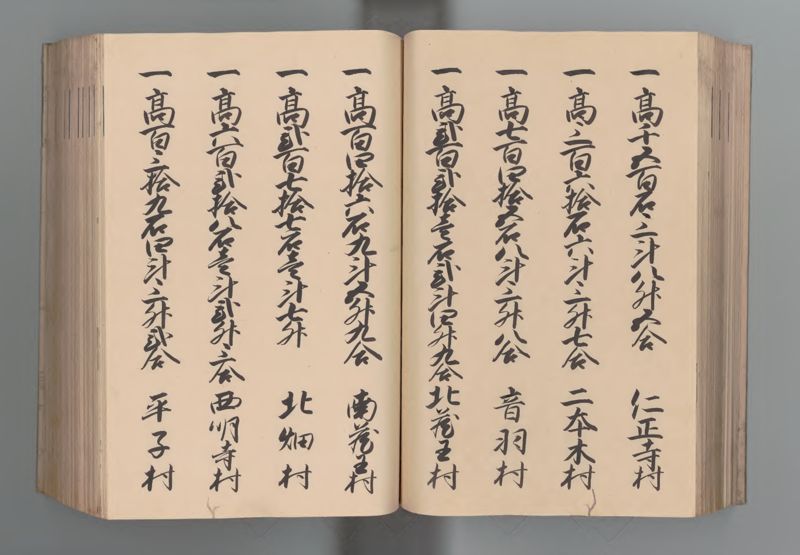 一高千五百石三斗八升五合 仁正寺村
一高三百六拾石六斗三升七合 二本木村
一高七百四拾五石八斗三升八合 音羽村
一高弐百弐拾壱石弐斗四升九合 北蔵王村
一高百四拾六石九斗五升九合 南蔵王村
一高弐百七拾七石壱斗七升 北畑村
一高六百弐拾八石壱斗弐升三合 西明寺村
一高百三拾九石四斗三升弐合 平子村